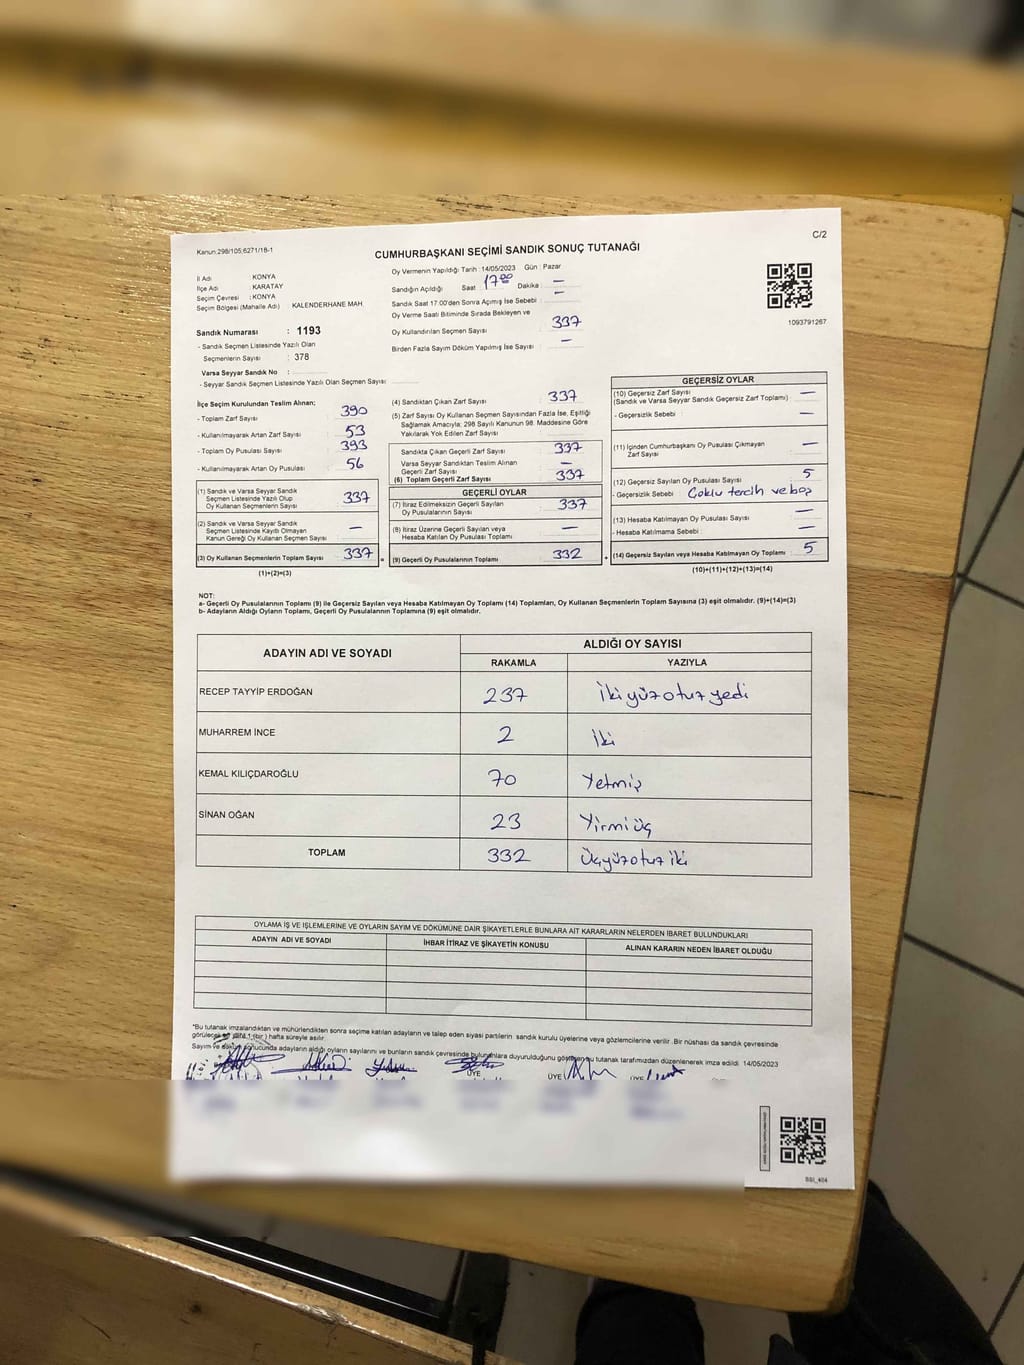 Kanun:298/105;6271/18-1
CUMHURBAŞKANI SEÇİMİ SANDIK SONUÇ TUTANAĞI
C/2
İl Adı : KONYA
İlçe Adı : KARATAY
Seçim Çevresi : KONYA
Seçim Bölgesi (Mahalle Adı) : KALENDERHANE MAH.
Sandık Numarası : 1193
- Sandık Seçmen Listesinde Yazılı Olan
Seçmenlerin Sayısı : 378
Varsa Seyyar Sandık No :
- Seyyar Sandık Seçmen Listesinde Yazılı Olan Seçmen Sayısı
Oy Vermenin Yapıldığı Tarih : 14/05/2023 Gün : Pazar
Sandığın Açıldığı Saat 17 00 Dakika : —
Sandık Saat 17:00'den Sonra Açımış İse Sebebi : —
Oy Verme Saati Bitiminde Sırada Bekleyen ve
Oy Kullandırılan Seçmen Sayısı : 337
Birden Fazla Sayım Döküm Yapılmış İse Sayısı : —
1093791267
İlçe Seçim Kurulundan Teslim Alınan;
- Toplam Zarf Sayısı : 390
- Kullanılmayarak Artan Zarf Sayısı : 53
- Toplam Oy Pusulası Sayısı : 393
- Kullanılmayarak Artan Oy Pusulası : 56
(1) Sandık ve Varsa Seyyar Sandık
Seçmen Listesinde Yazılı Olup
Oy Kullanan Seçmenlerin Sayısı : 337
(2) Sandık ve Varsa Seyyar Sandık
Seçmen Listesinde Kayıtlı Olmayan
Kanun Gereği Oy Kullanan Seçmen Sayısı : —
(3) Oy Kullanan Seçmenlerin Toplam Sayısı : 337
(1)+(2)=(3)
=
(4) Sandıktan Çıkan Zarf Sayısı : 337
(5) Zarf Sayısı Oy Kullanan Seçmen Sayısından Fazla İse, Eşitliği
Sağlamak Amacıyla; 298 Sayılı Kanunun 98. Maddesine Göre
Yakılarak Yok Edilen Zarf Sayısı :
Sandıkta Çıkan Geçerli Zarf Sayısı : 337
Varsa Seyyar Sandıktan Teslim Alınan
Geçerli Zarf Sayısı : —
(6) Toplam Geçerli Zarf Sayısı : 337
GEÇERLİ OYLAR
(7) İtiraz Edilmeksizin Geçerli Sayılan
Oy Pusulalarının Sayısı : 337
(8) İtiraz Üzerine Geçerli Sayılan veya
Hesaba Katılan Oy Pusulası Toplamı : —
(9) Geçerli Oy Pusulalarının Toplamı : 332
+
GEÇERSİZ OYLAR
(10) Geçersiz Zarf Sayısı
(Sandık ve Varsa Seyyar Sandık Geçersiz Zarf Toplamı) : —
- Geçersizlik Sebebi : —
(11) İçinden Cumhurbaşkanı Oy Pusulası Çıkmayan
Zarf Sayısı : —
(12) Geçersiz Sayılan Oy Pusulası Sayısı : 5
- Geçersizlik Sebebi : Çoklu tercih ve boş
(13) Hesaba Katılmayan Oy Pusulası Sayısı : —
- Hesaba Katılmama Sebebi : —
(14) Geçersiz Sayılan veya Hesaba Katılmayan Oy Toplamı : 5
(10)+(11)+(12)+(13)=(14)
NOT:
a- Geçerli Oy Pusulalarının Toplamı (9) ile Geçersiz Sayılan veya Hesaba Katılmayan Oy Toplamı (14) Toplamları, Oy Kullanan Seçmenlerin Toplam Sayısına (3) eşit olmalıdır. (9)+(14)=(3)
b- Adayların Aldığı Oyların Toplamı, Geçerli Oy Pusulalarının Toplamına (9) eşit olmalıdır.
ADAYIN ADI VE SOYADI
ALDIĞI OY SAYISI
RAKAMLA YAZIYLA
RECEP TAYYİP ERDOĞAN 237 İkiyüzotuzyedi
MUHARREM İNCE 2 İki
KEMAL KILIÇDAROĞLU 70 Yetmiş
SİNAN OĞAN 23 Yirmiüç
TOPLAM 332 Üçyüzotuziki
OYLAMA İŞ VE İŞLEMLERİNE VE OYLARIN SAYIM VE DÖKÜMÜNE DAİR ŞİKAYETLERLE BUNLARA AİT KARARLARIN NELERDEN İBARET BULUNDUKLARI
ADAYIN ADI VE SOYADI İHBAR İTİRAZ VE ŞİKAYETİN KONUSU ALINAN KARARIN NEDEN İBARET OLDUĞU
*Bu tutanak imzalandıktan ve mühürlendikten sonra seçime katılan adayların ve talep eden siyasi partilerin sandık kurulu üyelerine veya gözlemcilerine verilir. Bir nüshası da sandık çevresinde
görülecek 1 (bir) hafta süreyle asılır
Sayım ve sonucunda adayların aldığı oyların sayılarını ve bunların sandık çevresinde duyurulduğunu tutanak tarafımızdan düzenlenerek imza edildi. 14/05/2023
ÜYE ÜYE ÜYE
SSI_404